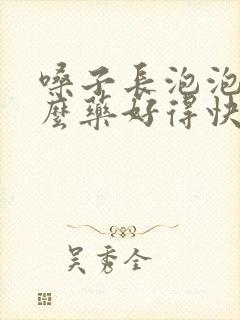 嗓子長泡泡
麼藥好得快
吴秀全